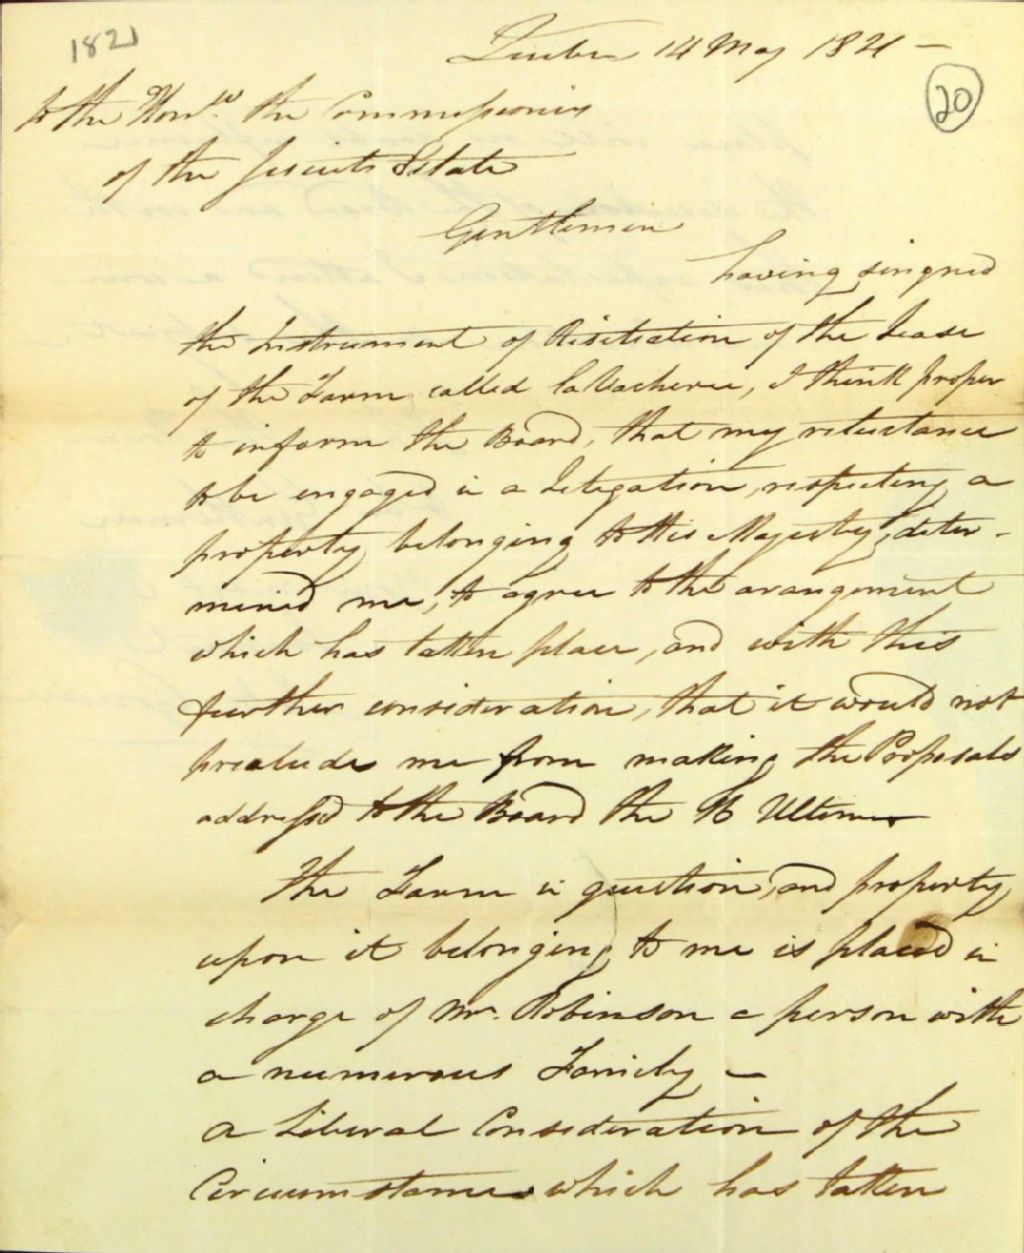 1821
Quebec 14 May 1821 —
20
To the Honble the Commissioners
of the Jesuits Estate
Gentlemen
having singned
the Instrument of Risiliation of the Lease
of the Farm called LaVacherie, I think proper
to inform the Board, that my reluctance
to be engaged in a Letegation, respecting a
property belonging to His Majesty, deter-
mined me, to agree to the arangement
which has taken place, and with this
further consideration, that it would not
preclude me from making the Proposals
addressed to the Board the 16 Ultimo
The Farm in question, and property
upon it belonging to me is placed in
charge of Mr. Robinson a person with
a numerous Family —
a Liberal Consideration of the
Circumstances which has taken